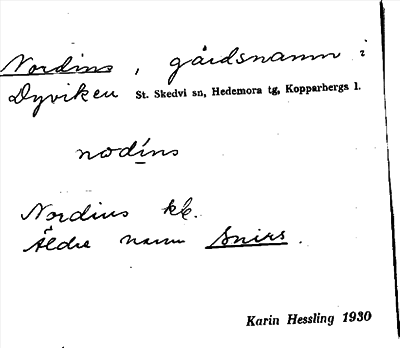 Nordins, gårdsnamn i
Dyviken St. Skedvi sn, Hedemora tg, Kopparbergs l.
nodíns
Nordins kk.
Äldre namn Snirs.
Karin Hessling 1930